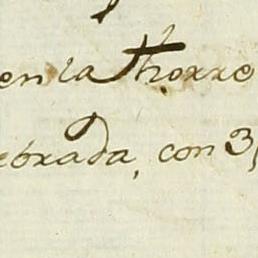 en la Thorre
ebrada, con 3